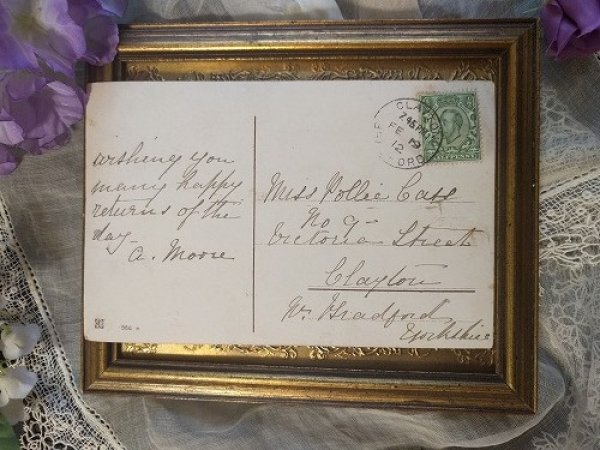 wishing you
many happy
returns of the
day
A. Moore
Miss Pollie Cass
No 9
Victoria Street
Clayton
Nr. Bradford
Yorkshire
CLAYTON
7.45 PM
FE 19
12